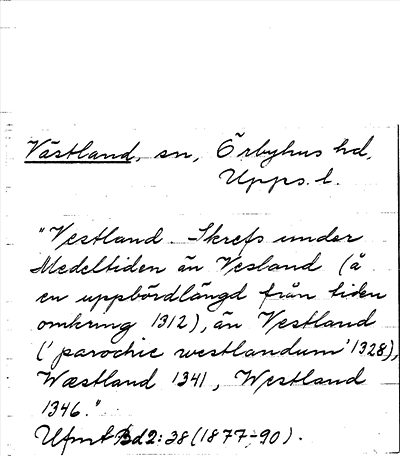 Västland, sn, Örbyhus hd,
Upps. l.
"Vestland. Skrefs under
Medeltiden än Vesland (å
en uppbördlängd från tiden
omkring 1312), än Vestland
('parochie westlandum' 1328),
Wæstland 1341, Westland
1346."
Ufmt Bd2:38 (1877-90).